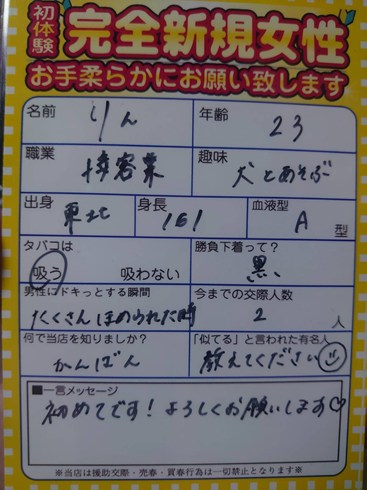 初体験
完全新規女性
お手柔らかにお願い致します
名前 りん 年齢 23
職業 接客業 趣味 犬とあそぶ
出身 東北 身長 161 血液型 A 型
タバコは 吸う 吸わない 勝負下着って? 黒、
男性にドキっとする瞬間 たくさんほめられた時 今までの交際人数 2 人
何で当店を知りましたか? かんばん 「似てる」と言われた有名人 教えてください
■一言メッセージ
初めてです!よろしくお願いします♡
※当店は援助交際・売春・買春行為は一切禁止となります※